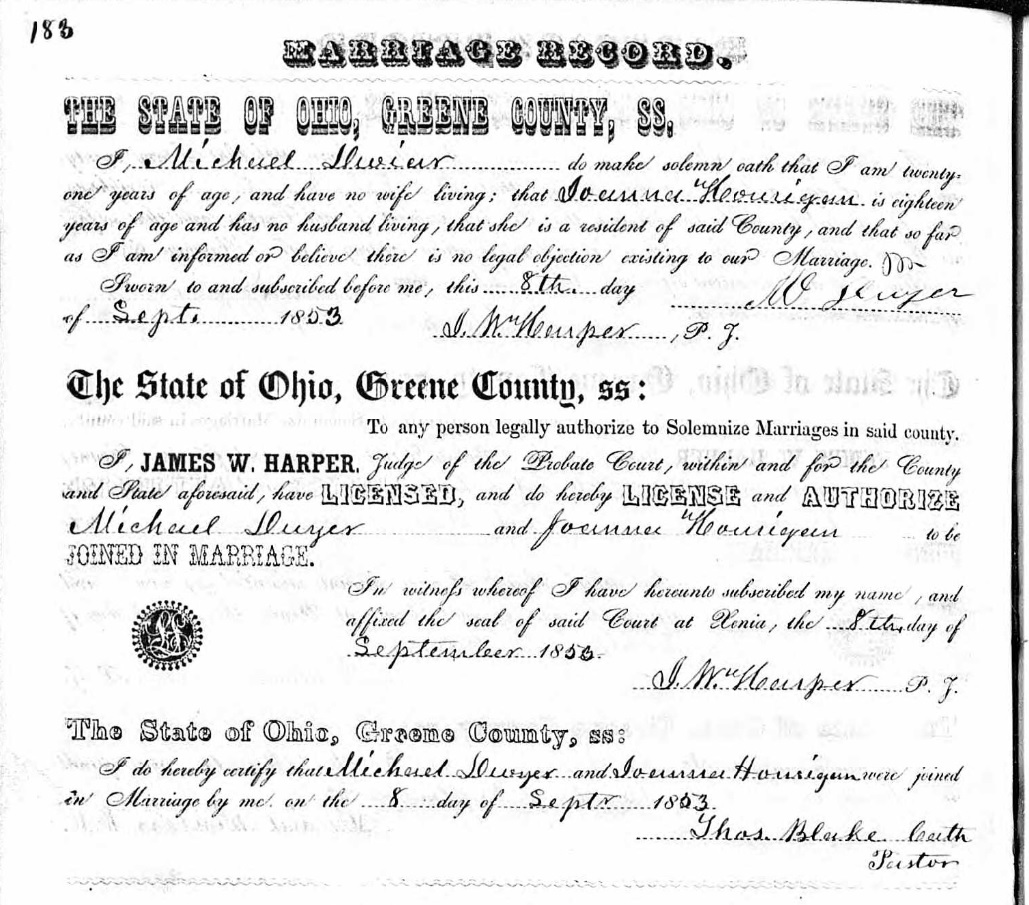 183
MARRIAGE RECORD.
THE STATE OF OHIO, GREENE COUNTY, SS.
I, Michael Dwier do make solemn oath that I am twenty-
one years of age, and have no wife living; that Joanna Hourigan is eighteen
years of age and has no husband living, that she is a resident of said County, and that so far
as I am informed or believe there is no legal objection existing to our Marriage.
Sworn to and subscribed before me, this 8th day
M Dwyer
of Sept. 1853 J. W. Harper, P. J.
The State of Ohio, Greene County, ss:
To any person legally authorize to Solemnize Marriages in said county.
I, JAMES W. HARPER. Judge of the Probate Court, within and for the County
and State aforesaid, have LICENSED, and do hereby LICENSE and AUTHORIZE
Michael Dwyer and Joanna Hourigan to be
JOINED IN MARRIAGE.
In witness whereof I have hereunto subscribed my name, and
affixed the seal of said Court at Xenia, the 8th day of
September 1853.
J. W. Harper P. J.
The State of Ohio, Greene County, ss:
I do hereby certify that Michael Dwyer and Joanna Hourigan were joined
in Marriage by me on the 8 day of Septr 1853.
Thos. Blake Cath
Pastor